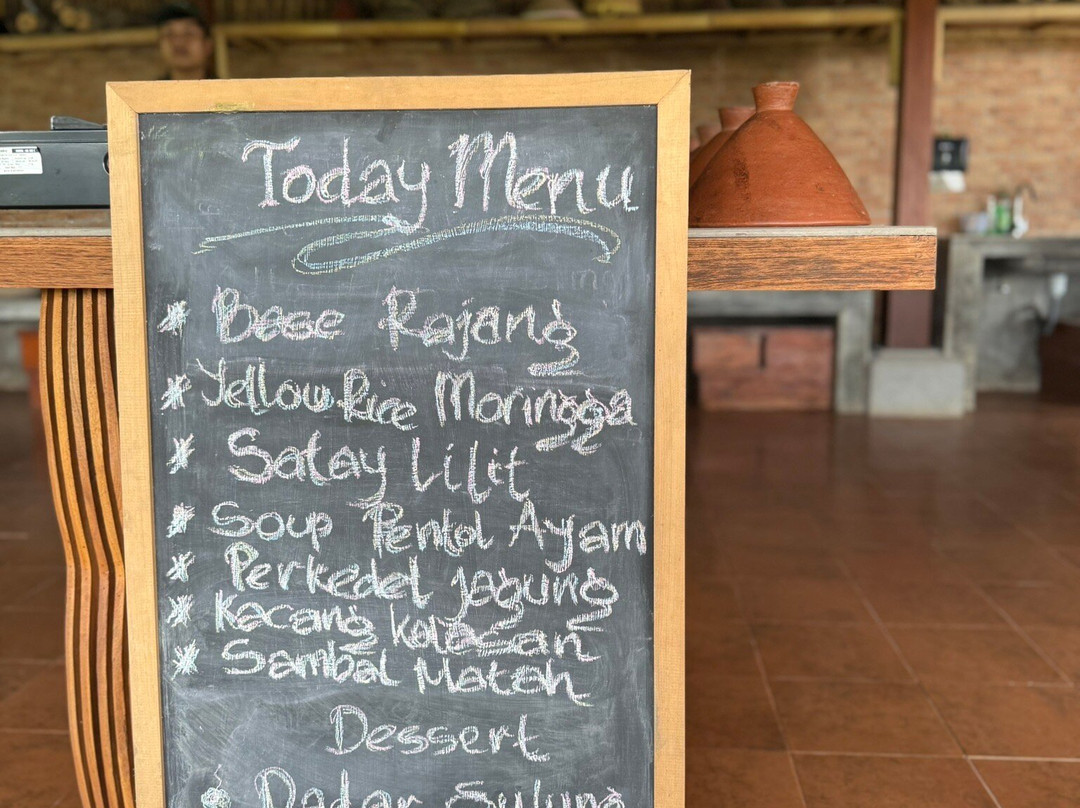 Today Menu
* Base Rajang
* Yellow Rice Moringga
* Satay Lilit
* Soup Pentol Ayam
* Perkedel Jagung
* Kacang
* Sambal Matah
Dessert
* Dadar Gulung